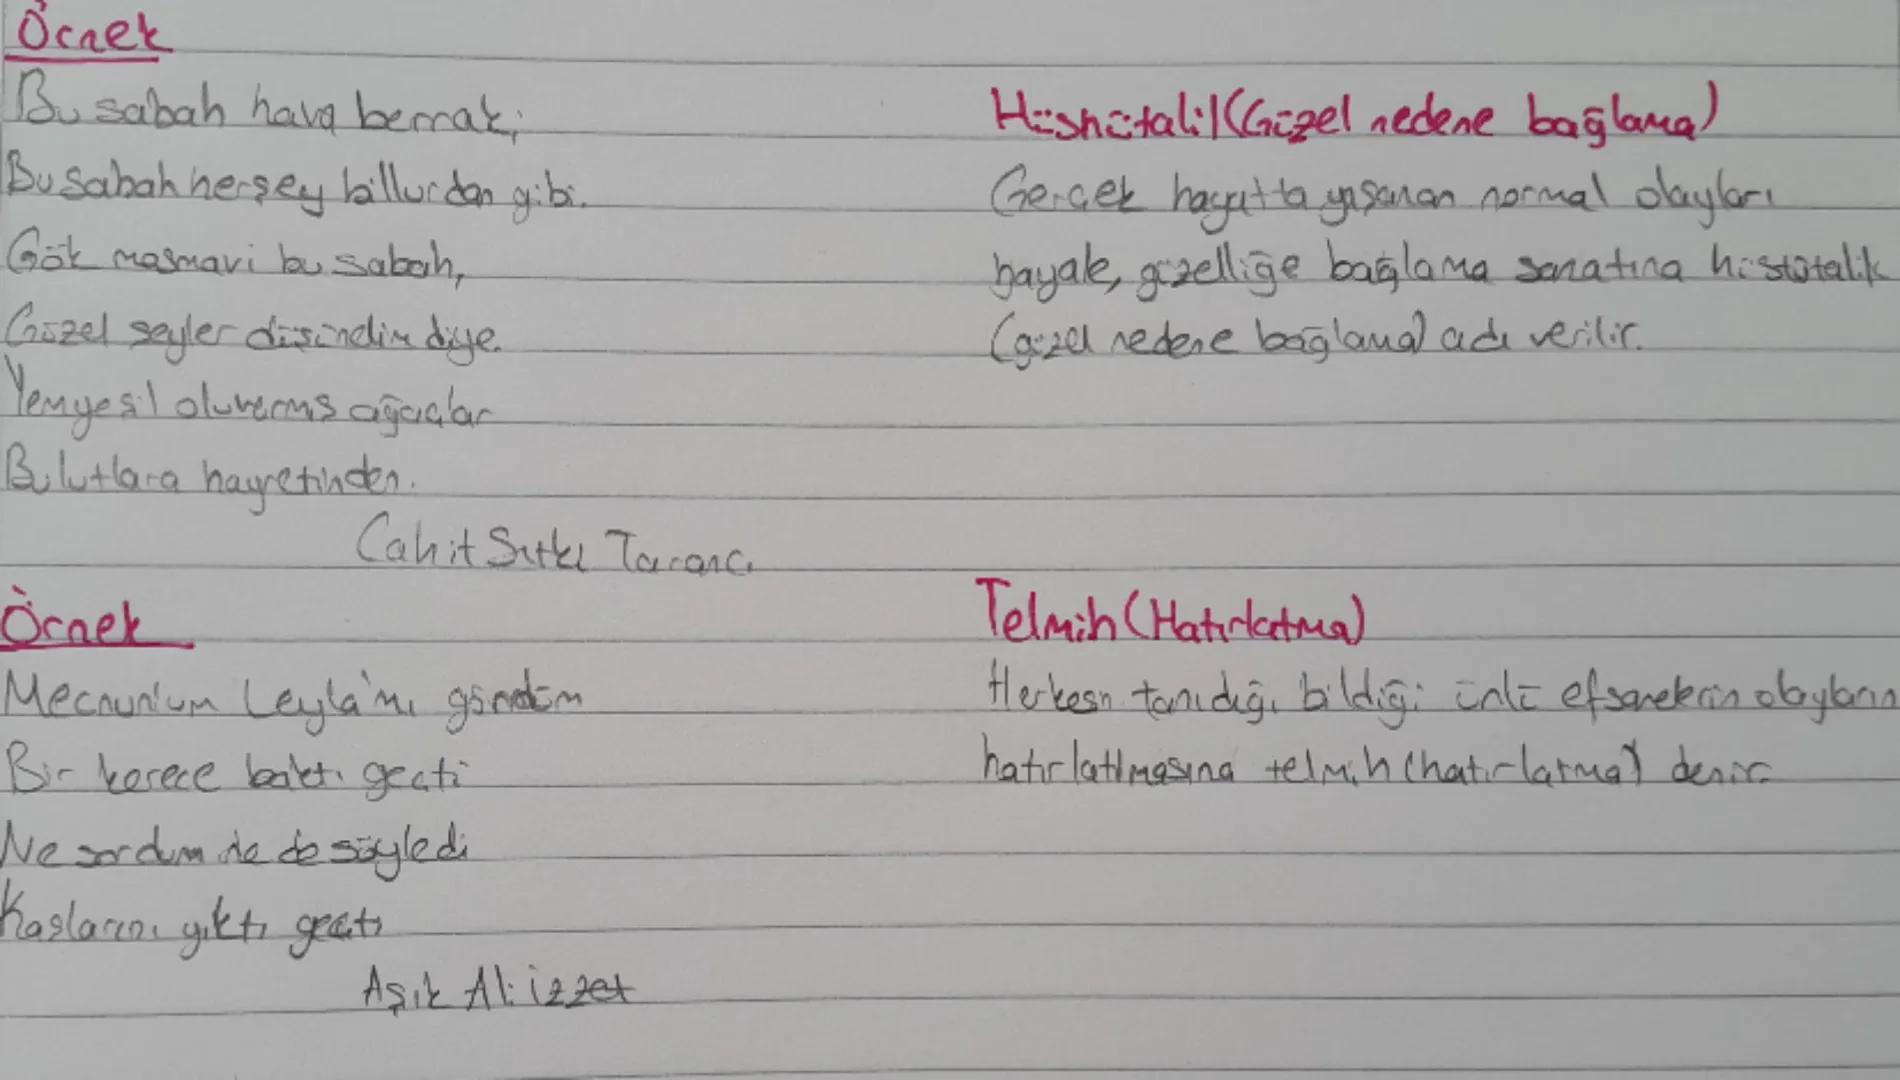 Örnek
Bu sabah hava berrak;
Bu sabah herşey billurdan gibi.
Gök masmavi bu sabah,
Güzel şeyler düşünelim diye.
Yemyeşil oluvermiş ağaçlar
Bulutlara hayretinden.
Cahit Sıtkı Tarancı
Hüsnütalil (Güzel nedene bağlama)
Gerçek hayatta yaşanan normal olayları
hayale, güzelliğe bağlama sanatına hüsnütalik
(güzel nedene bağlama) adı verilir.
Örnek
Mecnun'um Leyla'mı gördüm
Bir kerece baktı geçti
Ne sordum ne de söyledi
Kaşlarını yıktı geçti
Aşık Ali İzzet
Telmih (Hatırlatma)
Herkesin tanıdığı bildiği ünlü efsanelerin olayların
hatırlatılmasına telmih (hatırlatma) denir.